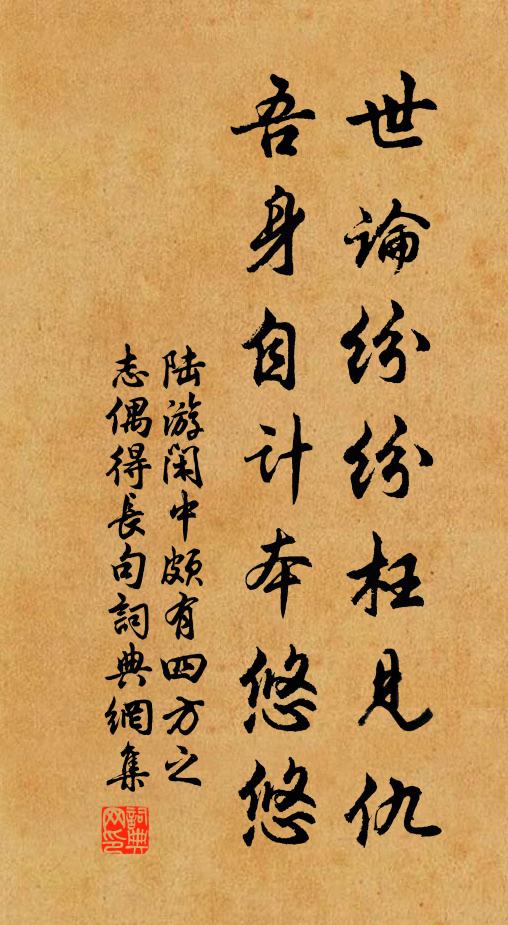 世論紛紛枉見仇
吾身自计本悠悠
陆游闲中颇有四方之
志偶得長句詞典網集
詞典网印